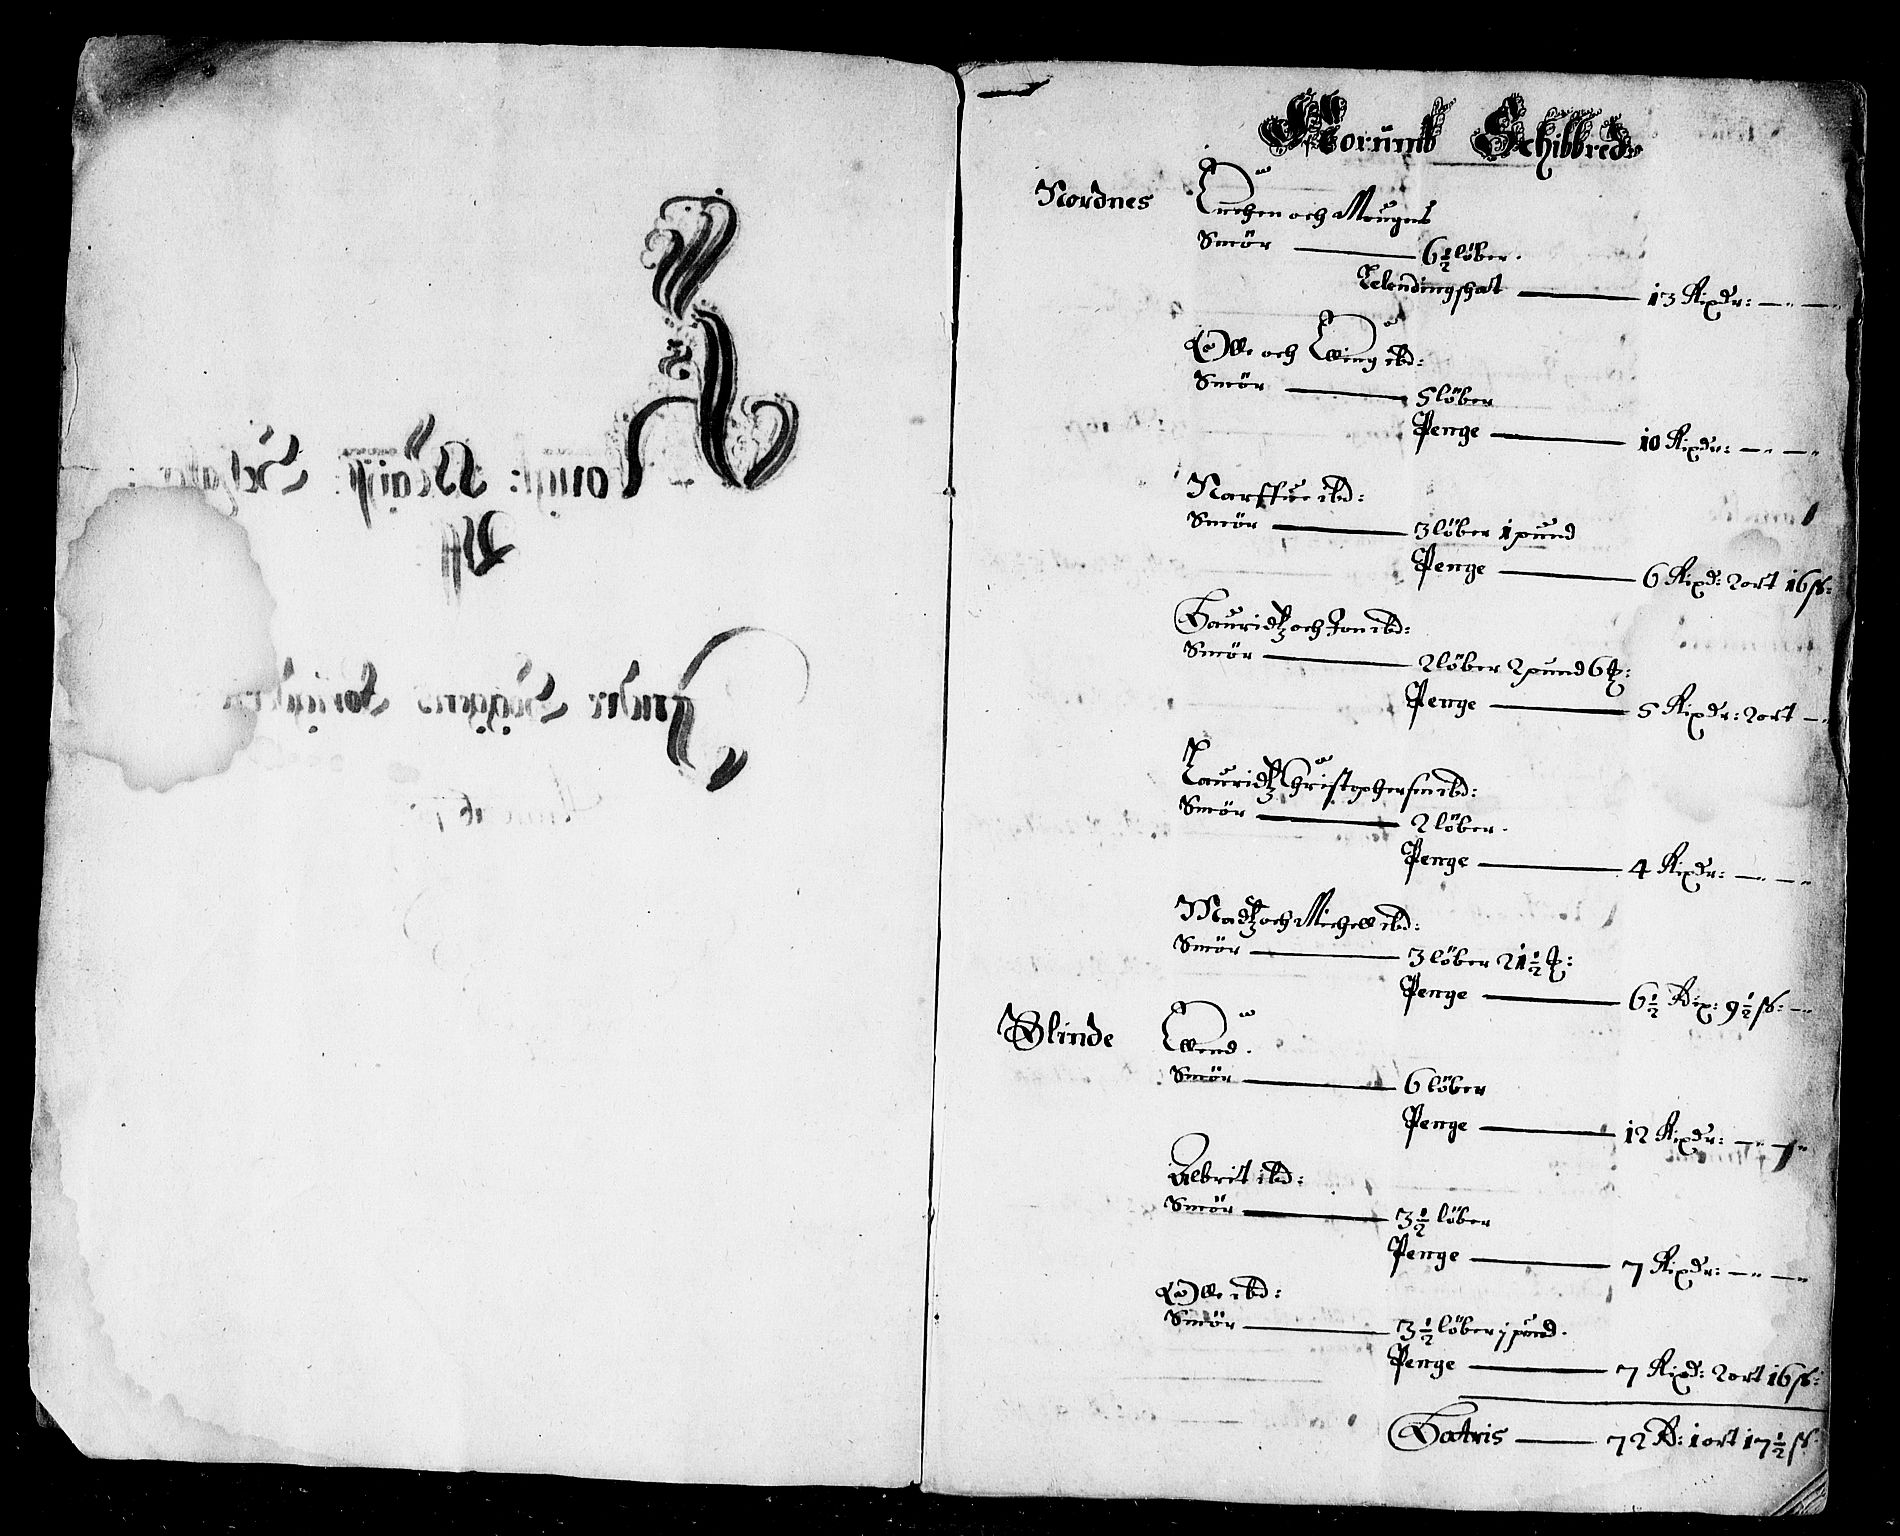 Norumb Schibbrede
Nordnes
Erichen och Mougens
Smör — 6½ löber.
Telendingskat — 13 Rixdr: — " — "
Olle och Elling ibd:
Smör — 5 löber
Penge — 10 Rixdr: — " — "
Narffue ibd:
Smör — 3 löber 1 pund
Penge — 6 Rixd: 2 ort 16 ß:
Lauridtz och Jon ibd:
Smör — 2 löber 2 pund 6 ℔:
Penge — 5 Rixdr: 2 ort — "
Lauridtz Christophersen ibd:
Smör — 2 löber.
Penge — 4 Rixdr: — " — "
Madtz och Michell ibd:
Smör — 3 löber 21½ ℔:
Penge — 6½ Rix: 9½ ß: — "
Blinde
Ellend.
Smör — 6 löber
Penge — 12 Rixdr: — " — "
Albrit ibd:
Smör — 3½ löber
Penge — 7 Rixdr: — " — "
Olle ibd:
Smör — 3½ löber j pund.
Penge — 7 Rixd: 2 ort 16 ß:
Latris — 72 R: 1 ort 17½ ß